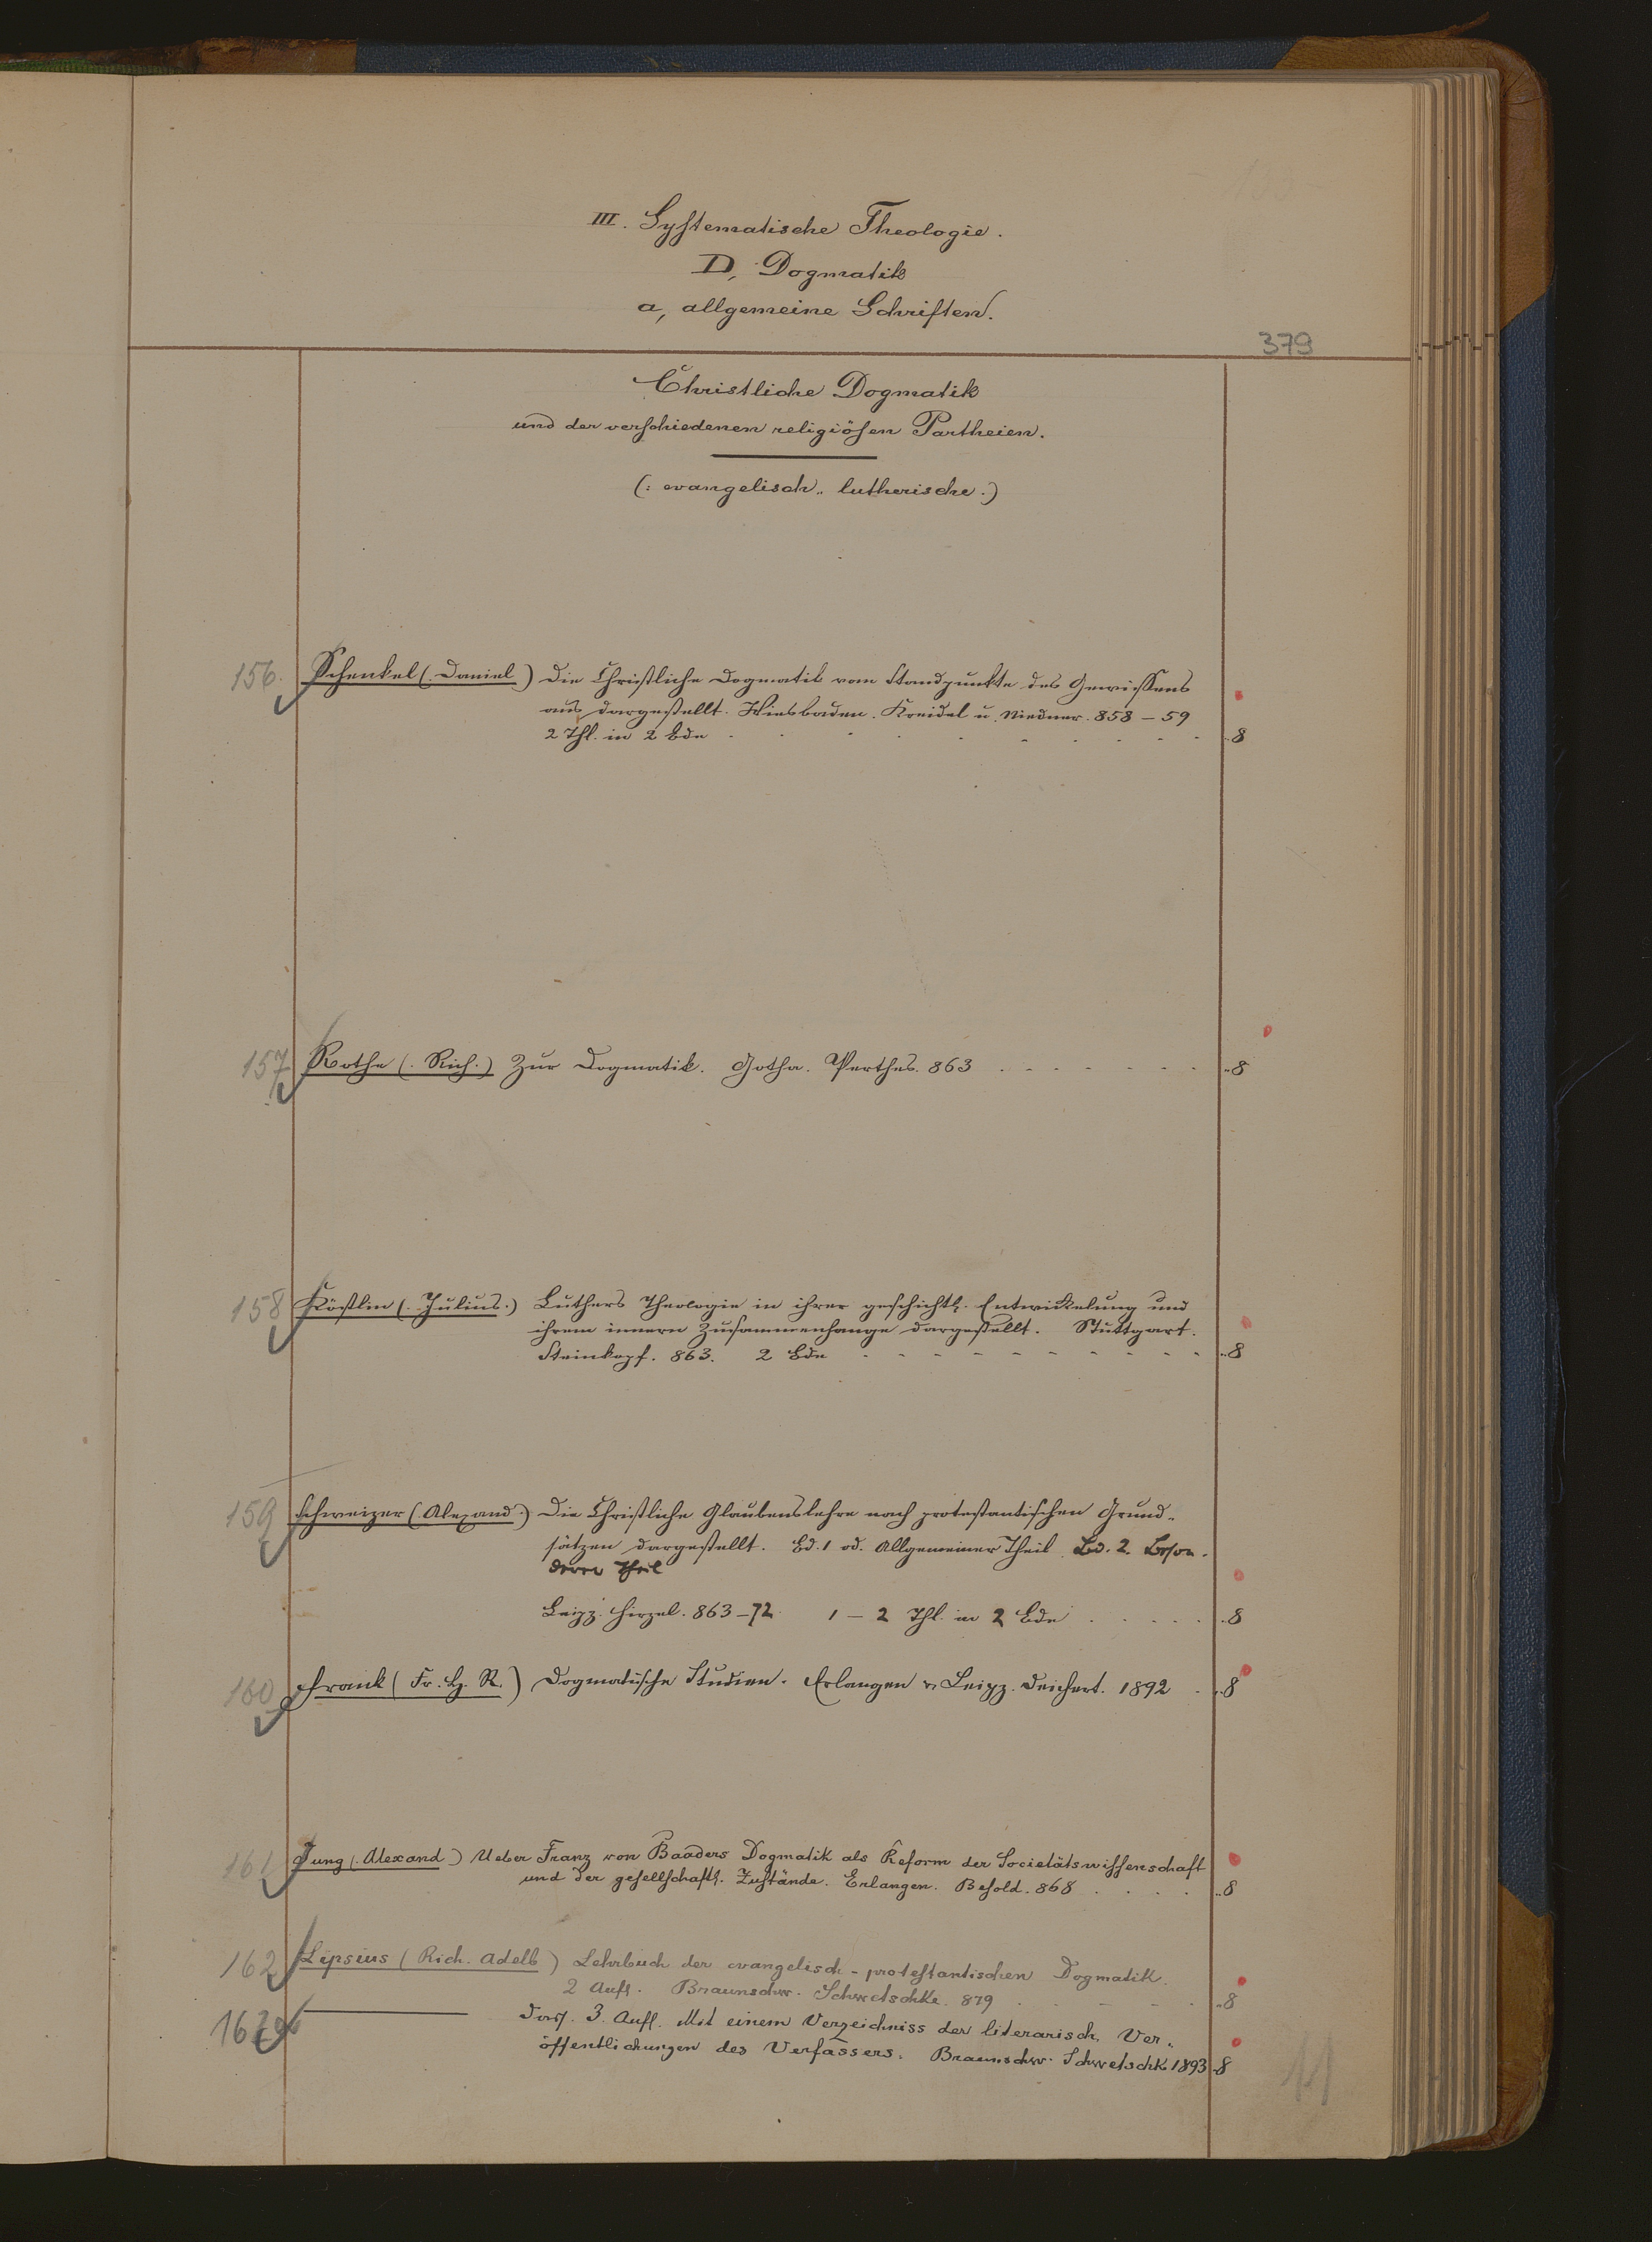 III. Systematische Theologie.
D, Dogmatik
a, allgemeine Schriften.
379
Christliche Dogmatik
und der verschiedenen religiösen Partheien.
(: evangelisch „ lutherische.)
156. Schenkel (. Daniel.) Die Christliche Dogmatik vom Standpunkte des Gewissens
aus dargestellt. Wiesbaden. Kreidel u. Niedner. 858 – 59
2 Thl. in 2 Bde . . . . . . . . . . „8
157 Rothe (. Rich.) Zur Dogmatik. Gotha. Perthes. 863 . . . . . . . „8
158 Köstlin (. Julius.) Luthers Theologie in ihrer geschichtl. Entwickelung und
ihrem innern Zusammenhange dargestellt. Stuttgart.
Steinkopf. 863. 2 Bde . . . . . . . . . . „8
159 Schweizer (. Alexand.) Die Christliche Glaubenslehre nach protestantischen Grund„
sätzen dargestellt. Bd. 1 od. Allgemeiner Theil. Bd. 2. Beson-
derer Theil
Leipz. Hirzel. 863–72 1 – 2 Thl. in 2 Bde . . . . . „8
160 Frank (Fr. H. R.) Dogmatische Studien. Erlangen u. Leipz. Deichert. 1892 . „8
161 Jung (. Alexand.) Ueber Franz von Baaders Dogmatik als Reform der Societätswissenschaft
und der gesellschaftl. Zustände. Erlangen. Besold. 868 . . . . „8
162 Lipsius (Rich. Adelb) Lehrbuch der evangelisch-protestantischen Dogmatik.
2 Aufl. Braunschw. Schwetschke. 879 . . . . . „8
162b ——— Dass. 3. Aufl. Mit einem Verzeichniss der literarisch. Ver„
öffentlichungen des Verfassers. Braunschw. Schwetschk. 1893 „8